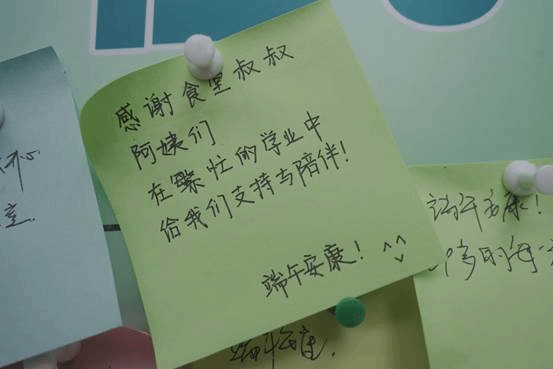 感谢食堂叔叔
阿姨们
在繁忙的学业中
给我们支持与陪伴!
端午安康! ^^
端午安康!